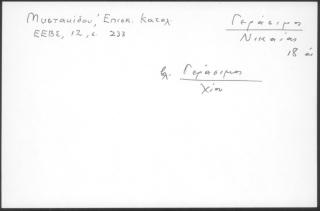 Μυστακίδου, Ἐπισκ. Κατάλ.
ΕΕΒΣ, 12, σ. 233
Γεράσιμος
Νικαίας
18 αι
βλ. Γεράσιμος
Χίου